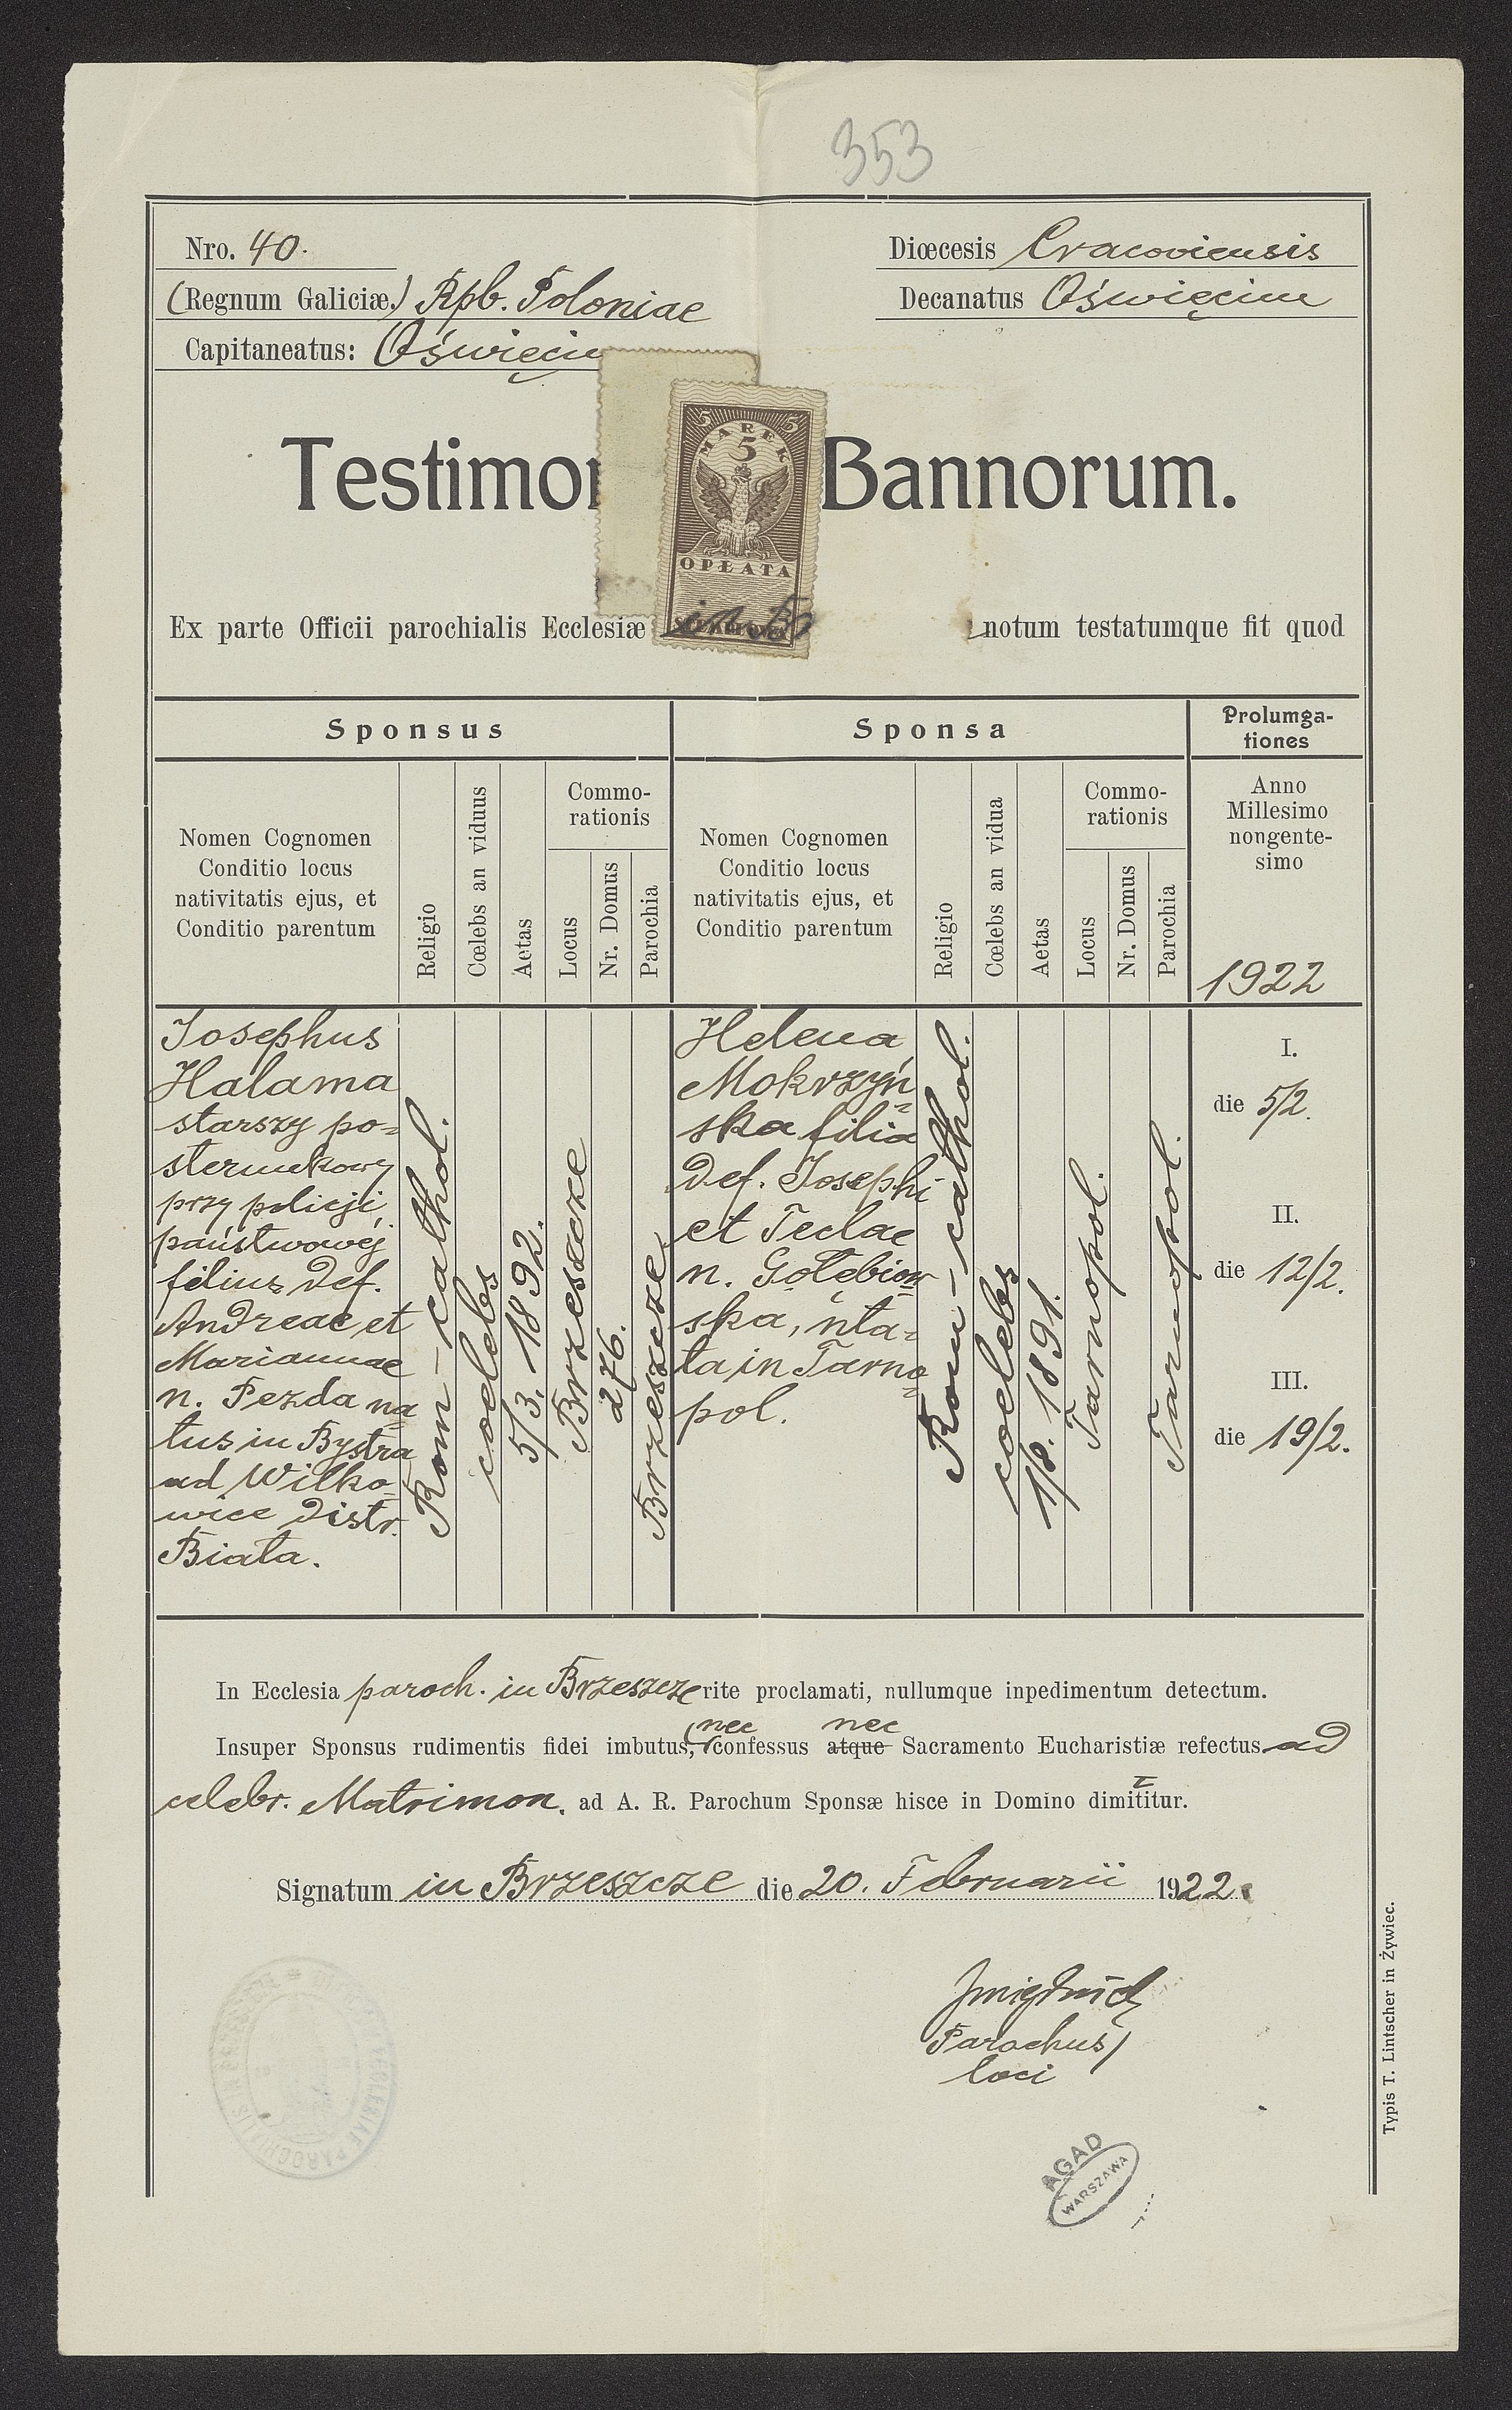 353
Nro. 40.
Diœcesis Cracoviensis
(Regnum Galiciæ.) Rpb. Poloniae
Decanatus Oświęcim
Capitaneatus: Oświęcim
5 5
MAREK
5
OPŁATA
Testimon Bannorum.
Ex parte Officii parochialis Ecclesiæ in notum testatumque fit quod
Sponsus
Nomen Cognomen
Conditio locus
nativitatis ejus, et
Conditio parentum
Religio
Cœlebs an viduus
Aetas
Commo-
rationis
Locus
Nr. Domus
Parochia
Sponsa
Nomen Cognomen
Conditio locus
nativitatis ejus, et
Conditio parentum
Religio
Cœlebs an vidua
Aetas
Commo-
rationis
Locus
Nr. Domus
Parochia
Prolumga-
tiones
Anno
Millesimo
nongente-
simo
1922
Josephus
Halama
starszy po=
sterunkowy
przy policji
państwowéj
filius def.
Andreae et
Mariannae
n. Pezda na=
tus in Bystra
ad Wilko=
wice distr.
Biała.
Rom-cathol.
coelebs
5/3. 1892.
Brzeszcze
276.
Brzeszcze
Helena
Mokrzyń=
ska filia
def. Josephi
et Teclae
n. Gołębiow=
ska, nta=
ta in Tarno=
pol.
Rom-cathol.
coelebs
1/8. 1891.
Tarnopol.
Tarnopol.
I.
die 5/2.
II.
die 12/2.
III.
die 19/2.
In Ecclesia paroch. in Brzeszcze rite proclamati, nullumque inpedimentum detectum.
nec nec
Insuper Sponsus rudimentis fidei imbutus, confessus atque Sacramento Eucharistiæ refectus ad
celebr. Matrimon. ad A. R. Parochum Sponsæ hisce in Domino dimititur.
Signatum in Brzeszcze die 20. Februarii 1922.
Parochus
loci
AGAD
WARSZAWA
Typis T. Lintscher in Żywiec.